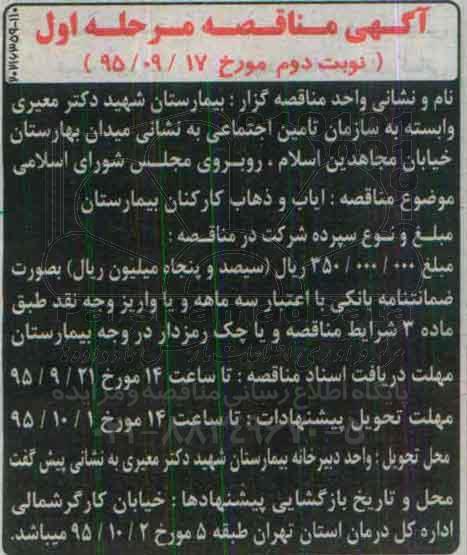 آگهی مناقصه مرحله اول
( نوبت دوم مورخ ۱۷ / ۰۹ / ۹۵ )
نام و نشانی واحد مناقصه گزار : بیمارستان شهید دکتر معیری
وابسته به سازمان تامین اجتماعی به نشانی میدان بهارستان
خیابان مجاهدین اسلام ، روبروی مجلس شورای اسلامی
موضوع مناقصه : ایاب و ذهاب کارکنان بیمارستان
مبلغ و نوع سپرده شرکت در مناقصه :
مبلغ ۳۵۰/۰۰۰/۰۰۰ ریال (سیصد و پنجاه میلیون ریال) بصورت
ضمانتنامه بانکی با اعتبار سه ماهه و یا واریز وجه نقد طبق
ماده ۳ شرایط مناقصه و یا چک رمزدار در وجه بیمارستان
مهلت دریافت اسناد مناقصه : تا ساعت ۱۴ مورخ ۲۱ / ۹ / ۹۵
مهلت تحویل پیشنهادات : تا ساعت ۱۴ مورخ ۱ / ۱۰ / ۹۵
محل تحویل : واحد دبیرخانه بیمارستان شهید دکتر معیری به نشانی پیش گفت
محل و تاریخ بازگشایی پیشنهادها : خیابان کارگرشمالی
اداره کل درمان استان تهران طبقه ۵ مورخ ۲ / ۱۰ / ۹۵ میباشد.